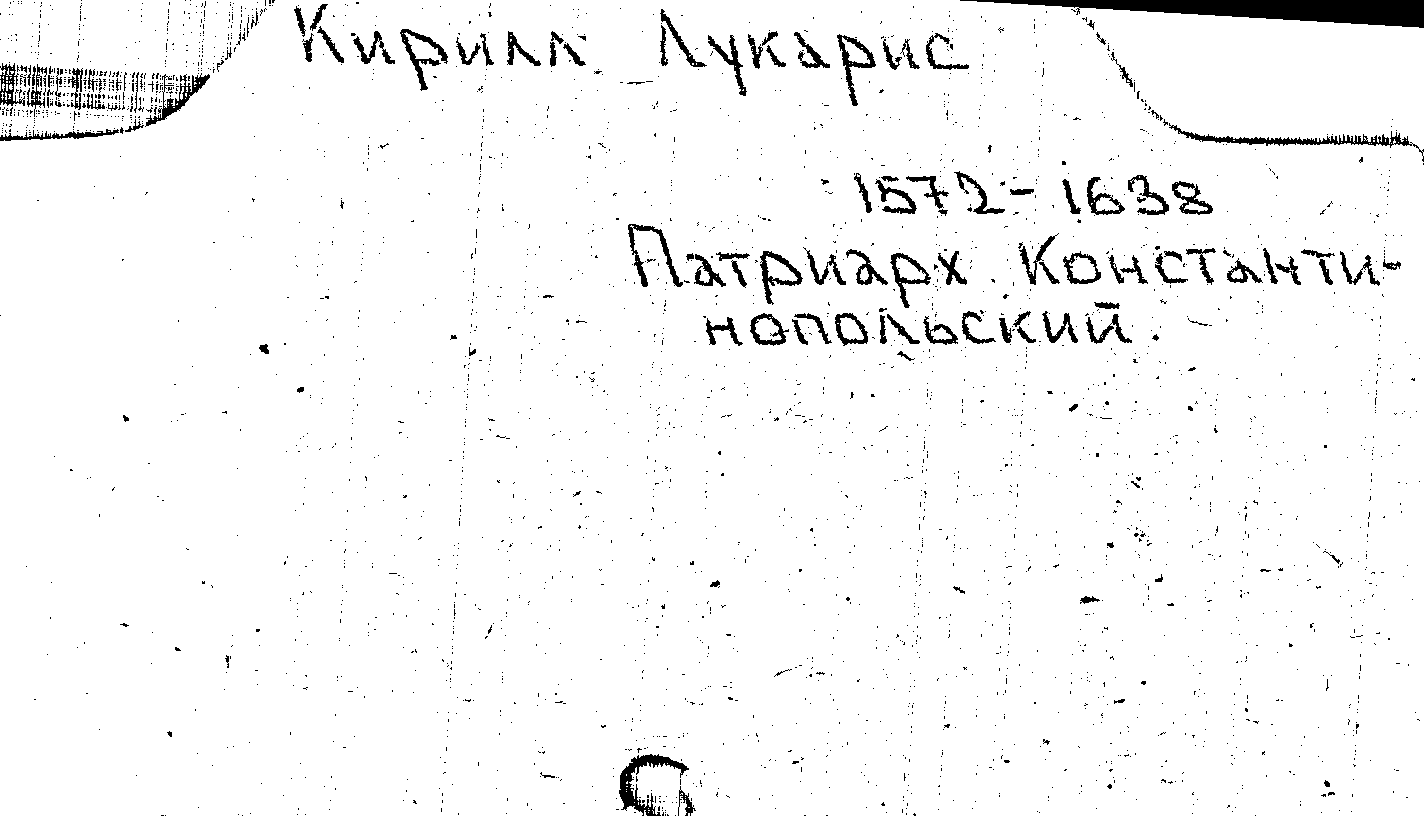 Кирилл Лукарис
1572-1638
Патриарх Константи-
нопольский.